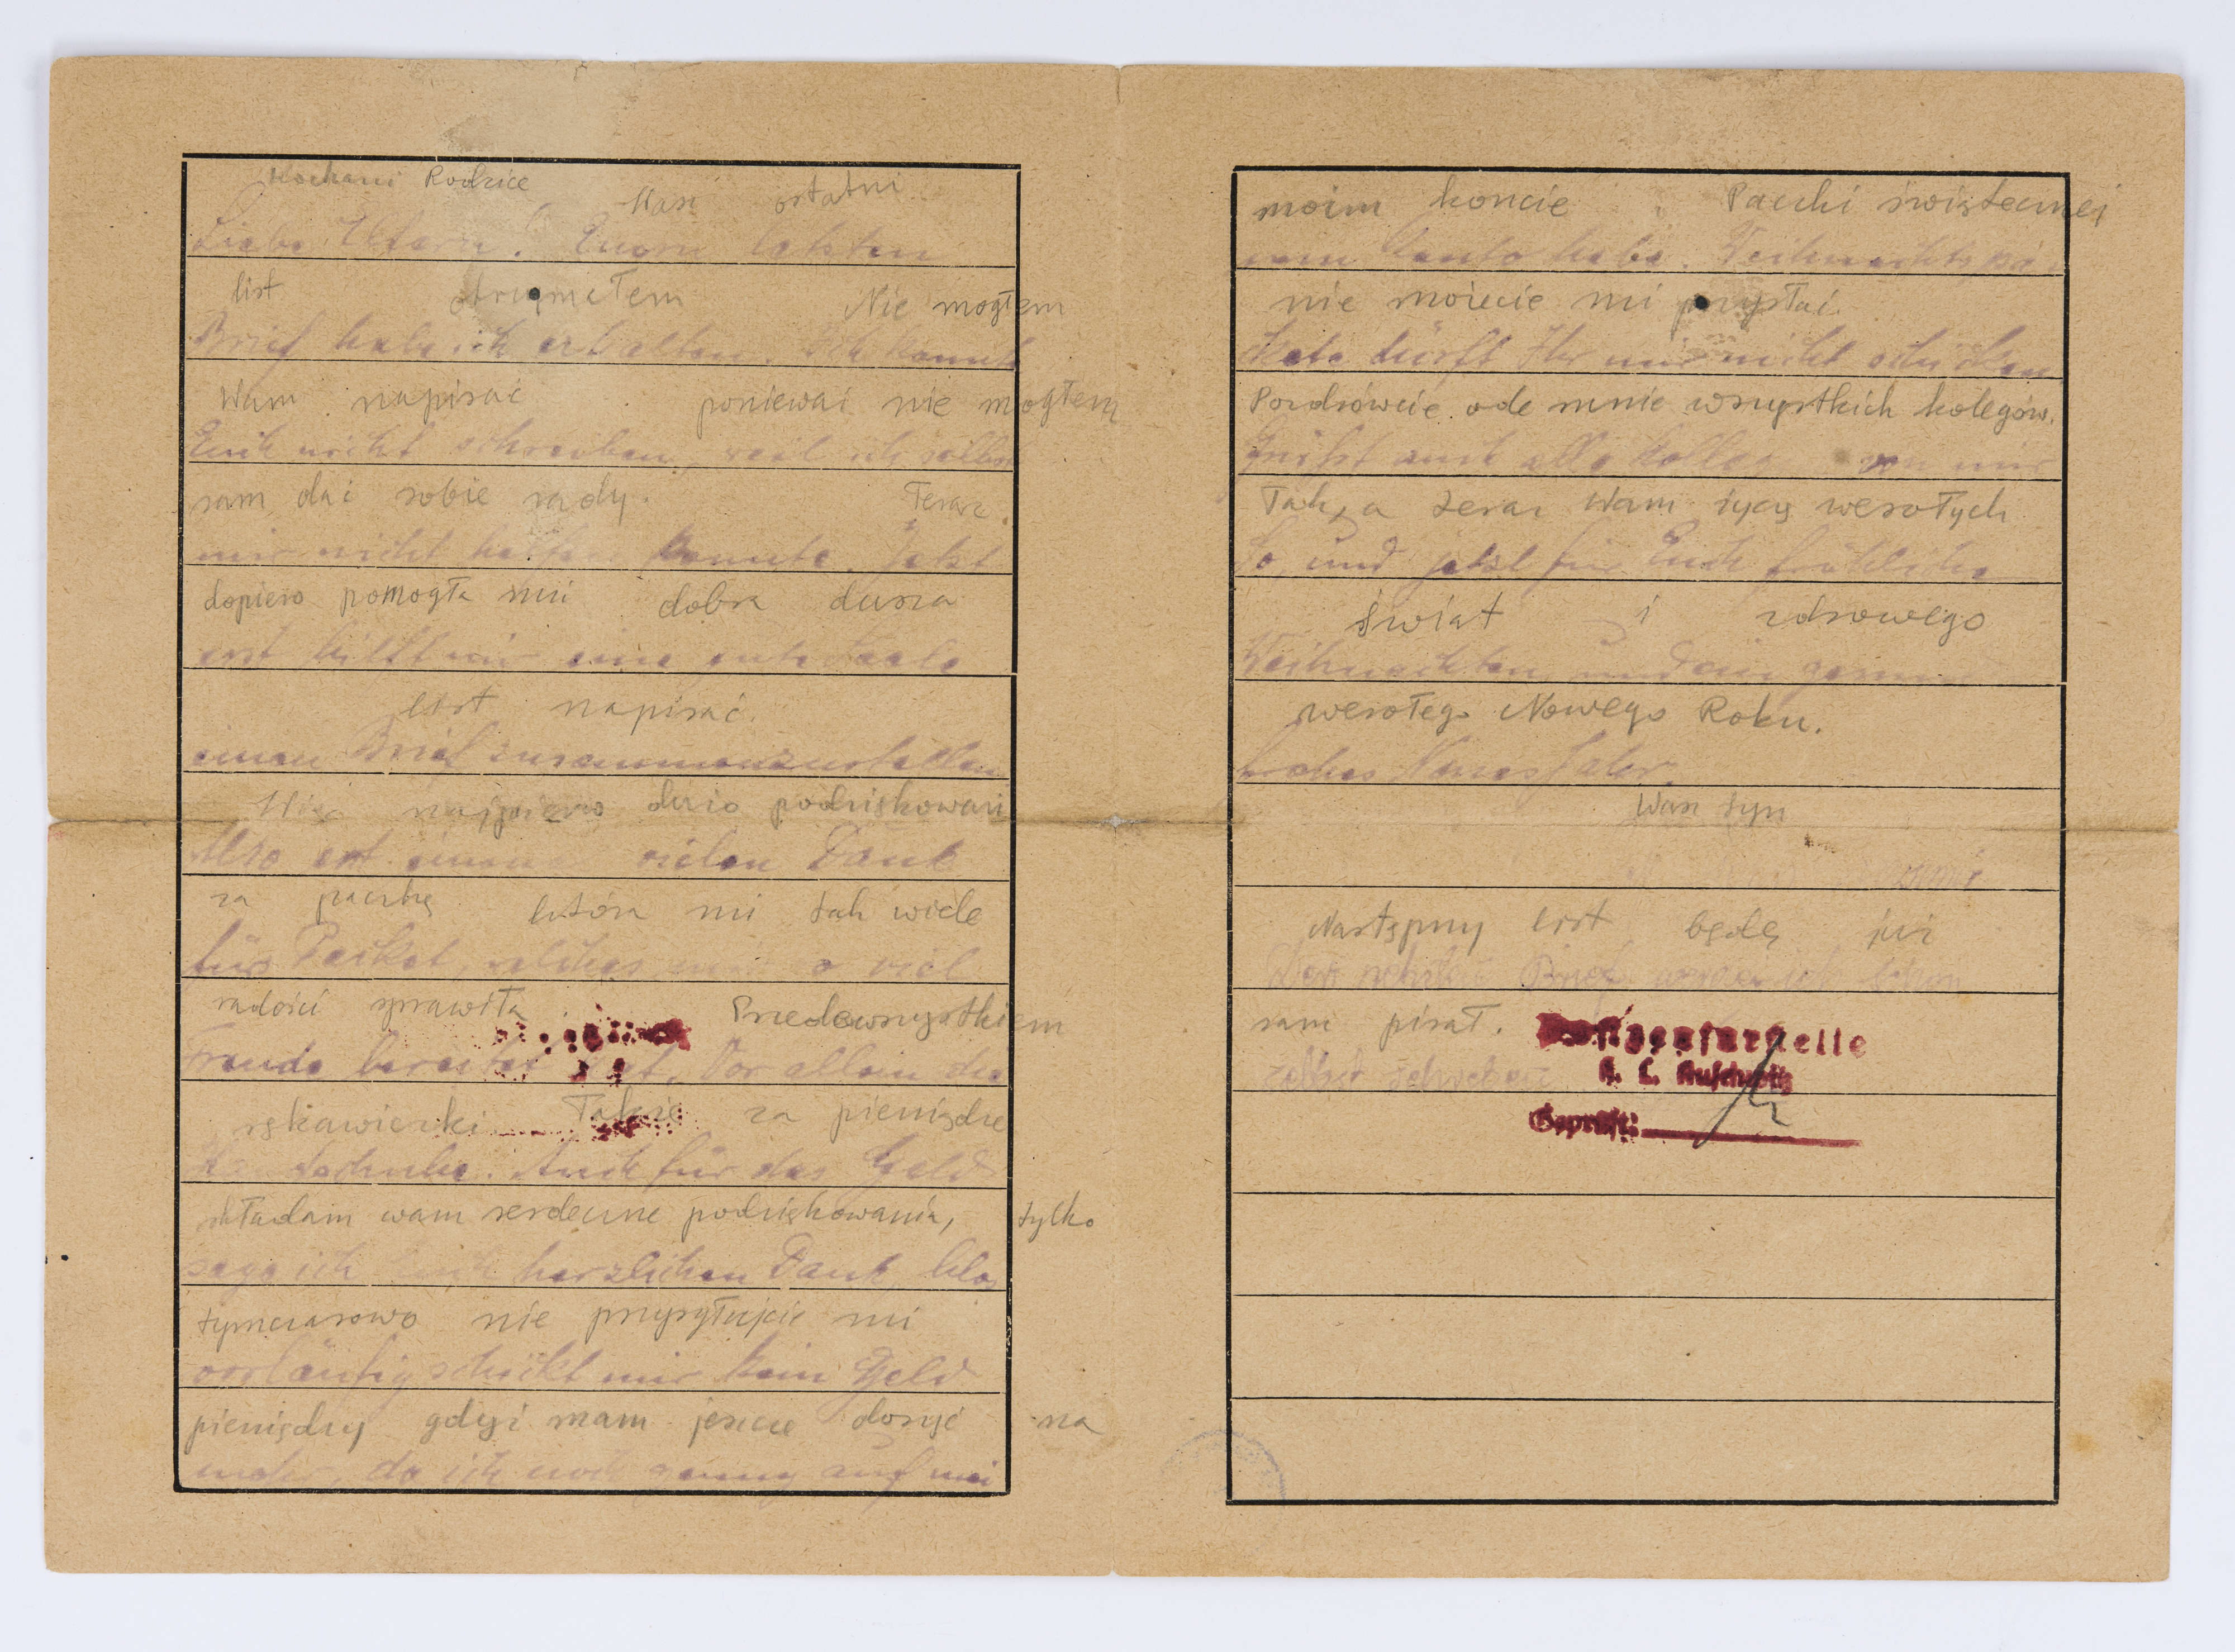 Kochani Rodzice Wasz ostatni
Liebe Eltern! Euern letzten
list otrzymałem Nie mogłem
Brief habe ich erhalten. Ich konnte
Wam napisać ponieważ nie mogłem
Euch nicht schreiben, weil ich selbst
sam dać sobie rady. Teraz
mir nicht helfen konnte. Jetzt
dopiero pomogła mi dobra dusza
erst hilft mir eine gute Seele
list napisać.
einen Brief zusammenzustellen
najpierw dużo podziękowań
Also erst einmal vielen Dank
za paczkę która mi tak wiele
fürs Packet, welches mir so viel
radości sprawiła Przedewszystkiem
Freude bereitet hat. Vor allem die
rękawiczki Także za pieniądze
Handschuhe. Auch für das Geld
składam wam serdeczne podziękowania, tylko
sage ich Euch herzlichen Dank, blos
tymczasowo nie przysyłajcie mi
vorläufig schickt mir kein Geld
pieniędzy gdyż mam jeszcze dosyć na
mehr, da ich noch genug auf mei
moim koncie Paczki świątecznej
nem Konto habe. Weihnachtspä
nie możecie mi przysłać.
ckete dürft Ihr mir nicht schicken
Pozdrówcie ode mnie wszystkich kolegów.
Grüßt auch alle Kolleg von mir
Tak, a teraz Wam życzę wesołych
So, und jetzt für Euch fröhliche
świąt i zdrowego
Weihnachten und ein
wesołego Nowego Roku.
frohes Neues Jahr.
Wasz syn
Następny list będę już
Den nächsten Brief werde ich schon
sam pisał.
selbst schreiben
Geprüft:
K. L. Auschwitz